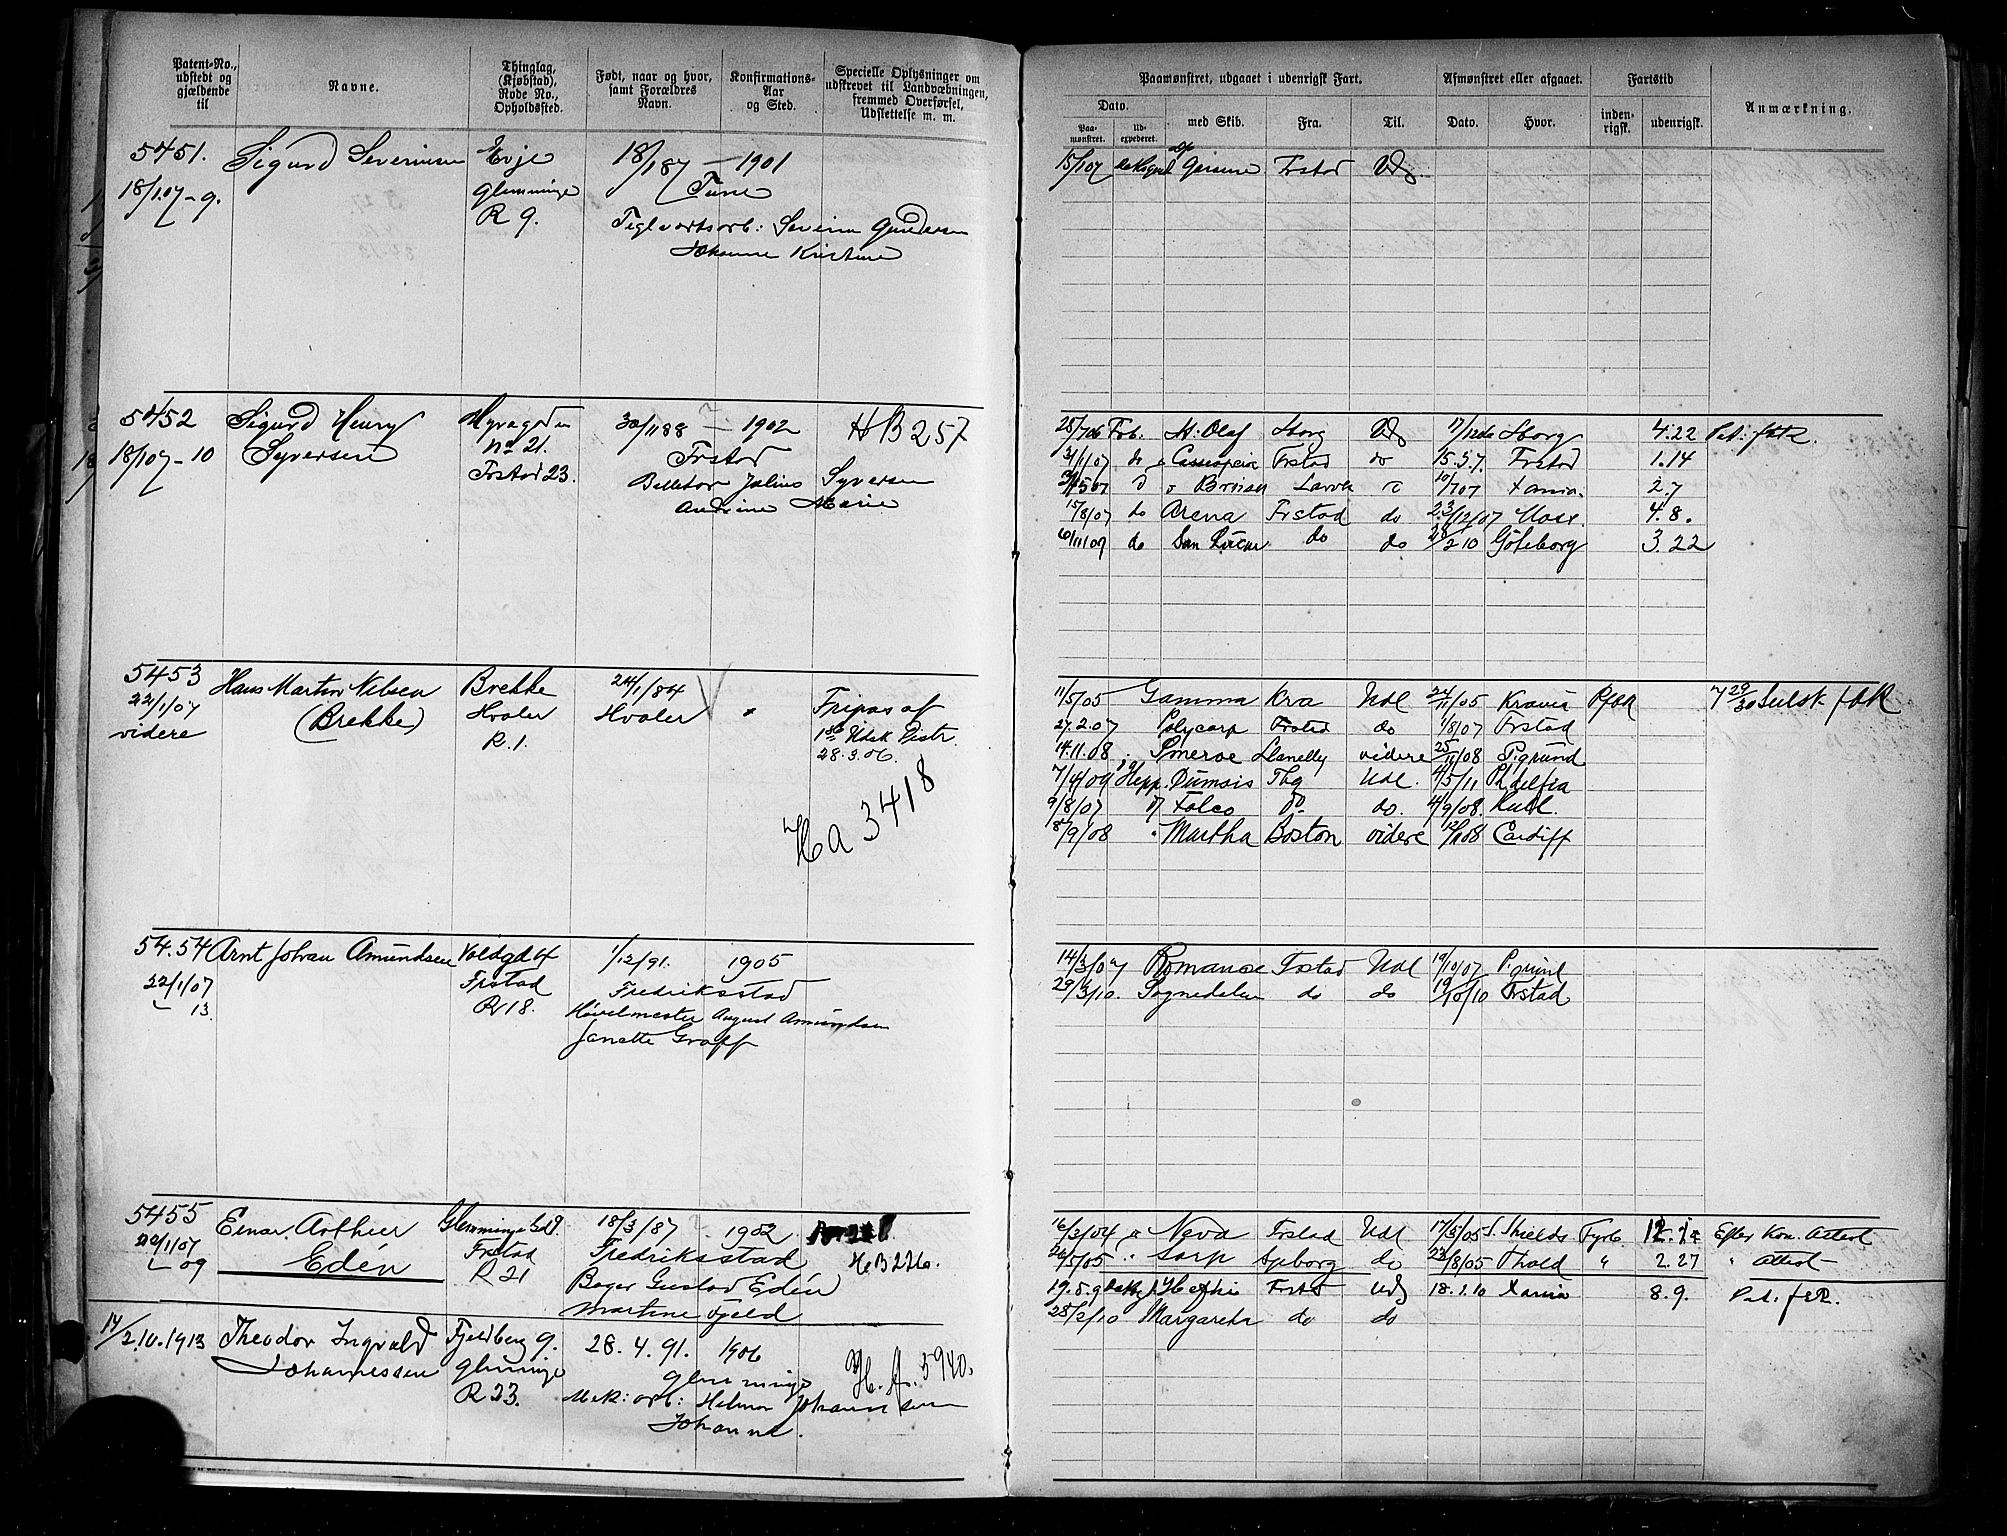 Patent-No., udstedt og gjældende til
Navne.
Thinglag, (Kjøbstad), Rode No., Opholdssted.
Født, naar og hvor, samt Forældres Navn.
Konfirmations-Aar og Sted.
Specielle Oplysninger om udskrevet til Landvæbningen, fremmed Overførsel, Udslettelse m. m.
5451. Sigurd Severinsen Evje 18/1 87 — 1901
18/1 07 - 9. Glemminge Tune
R 9. Teglverksarb: Severin Gundersen
Johanne Kristine
5452 Sigurd Henry 30/11 88 — 1902 HB 257
18/1 07 - 10 Syversen No 21. Frstad
Frstad 23. Julius Syversen
Andrine Marie
5453 Hans Martin Nilsen Brekke 24/1/84 Fripas af
22/1/07 (Brekke) Hvaler Hvaler 1ste Udsk Distr.
videre R. 1. 28.3.06.
Ha 3418
54.54 Arnt Johan Amundsen Voldgd 4 1/12/91. 1905
22/1/07 Frstad Fredriksstad
13. R 18. Høvelmester August Amundsen
Janette Graff
5455 Einar Arthur Glemminge 18/3/87 - 1902
22/1/07 Edén Frstad Fredriksstad HB 226.
09 R 21 Bager Gustav Edén
Martine Fjeld
14/2.10.1913 Theodor Ingvald Fjeldberg 9. 28. 4. 91. 1906
Johannessen Glemminge Glemminge H. A. 5940.
R 23. Mek: arb: Helmer Johannessen
Johanne.
Paamønstret, udgaaet i udenrigsk Fart.
Afmønstret eller afgaaet.
Fartstid
Anmærkning.
Dato.
Paa-mønstret.
Ud-expederet.
med Skib.
Fra.
Til.
Dato.
Hvor.
inden-rigsk.
udenrigsk.
15/1 07 Frstad Udl
28/7 06 Frb. St. Olaf Sborg Udl 17/12 06 Sborg 4.22 Pat: f&k.
31/1/07 do Cassiopeia Frstad do 15.5.7. Frstad 1.14
Larvik 10/7 07 Xania. 2.7
15/8/07 do Arena Frstad do 23/12/07 Moss. 4.8.
6/11 09 do do do 28/2 10 Göteborg 3.22
11/5/05 Gamma Kra Udl 24/11/05 Kravia
27.2.07 Polycarp Frstad do 1/8/07 Frstad
14.11.08 Llanelly videre 25/11/08 P.grund
7/4/09 Tbg Udl. 4/5/11 Phdelfia
9/8/07 Folco do. 4/9/08.
8/9/08 Martha Boston videre 12/11 08 Cardiff
14/3/07 Romanoe Frstad Udl 19/10/07 P.grund
29/3/10. Sognedalen do do 19/10/10 Frstad
16/3/04 Neva Frstad Udl 17/3/05 S. Shields Fyrb. Efter Kon. Attest
26/5/05 Sarp Spborg do 23/8/05 Thald " 2.27 " Attest
19.5.9 Frstd Udl 18.1.10 Xania 8.9. Pat. f&k.
28/2/10 Margareta do do